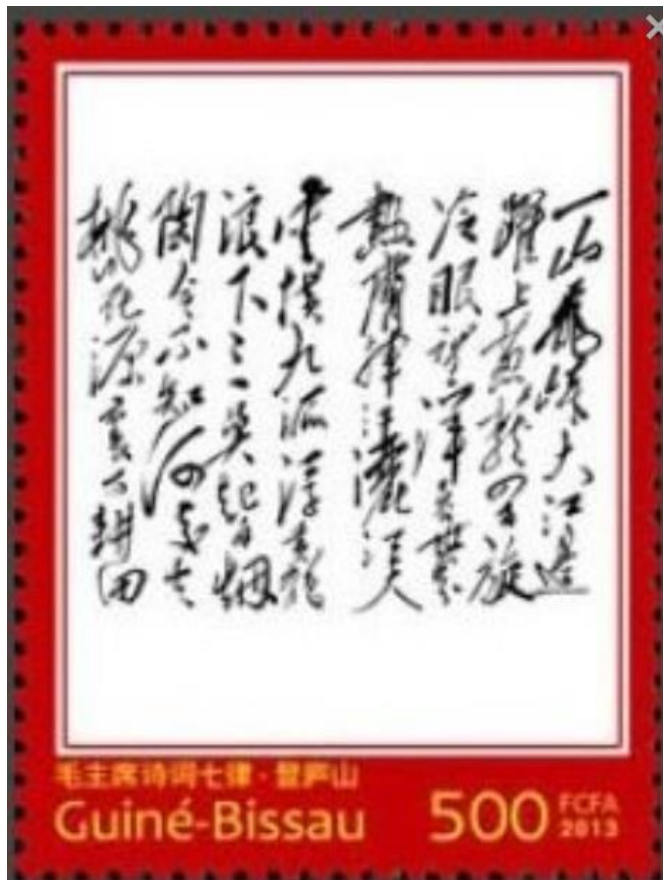 一山飛峙大江邊
躍上葱蘢四百旋
冷眼望洋看世界
熱膚揮汗灑江天
雲横九派浮黄鶴
浪下三吴起白烟
陶令不知何處去
桃花源裏可耕田
毛主席诗词七律·登庐山
Guiné-Bissau 500 FCFA
2013